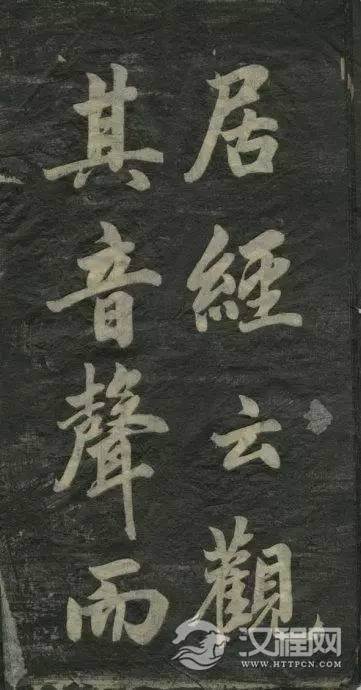 居經云觀
其音聲而
汉程网
WWW.HTTPCN.COM